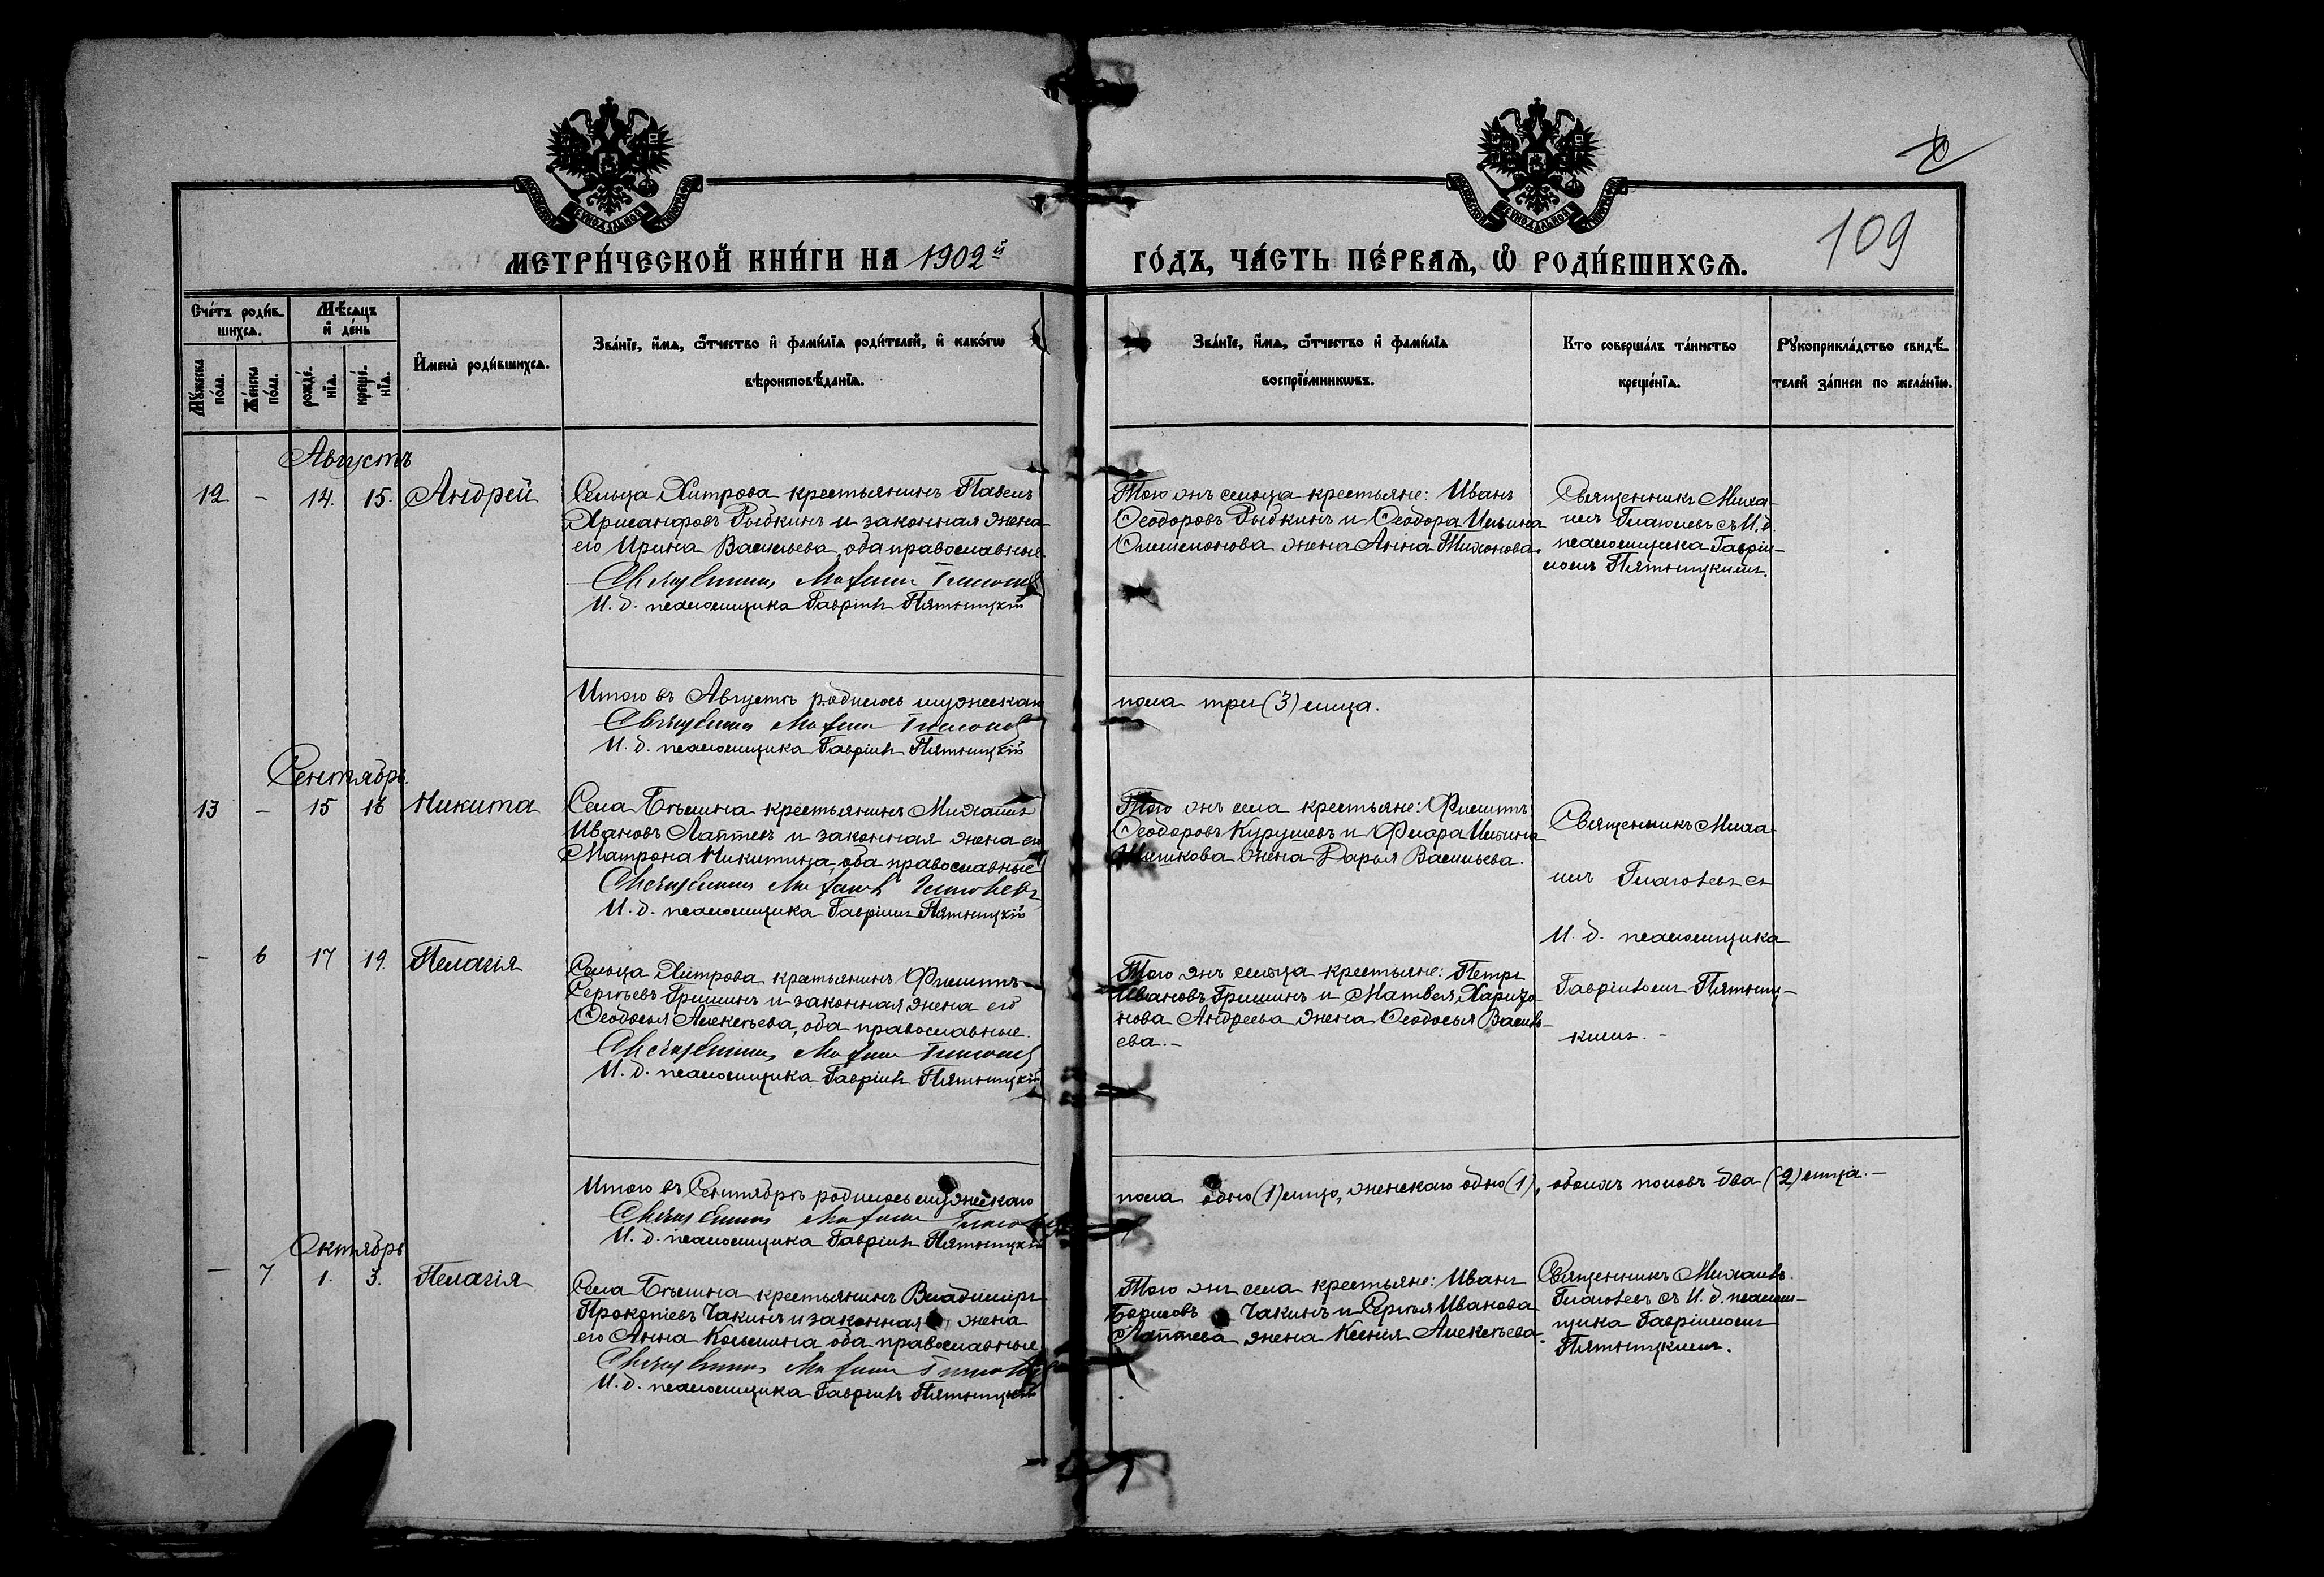 МЕТРИ́ЧЕСКОЙ КНИ́ГИ НА 1902й
ГО́ДЪ, ЧА́СТЬ ПЕ́РВАѦ, Ѡ РОДИ́ВШИХСѦ.
109
Сче́тъ роди́в-
шихсѧ.
Мѣ́сѧцъ
и де́нь
Мꙋ́жеска
по́ла.
Же́нска
по́ла.
рожде́-
нїѧ.
креще́-
нїѧ.
Имена̀ роди́вшихсѧ.
Зва́нїе, и́мѧ, ѻ́тчество и фами́лїѧ роди́телей, и како́гѡ
вѣроисповѣ́данїѧ.
Зва́нїе, и́мѧ, ѻ́тчество и фами́лїѧ
воспрїе́мникѡвъ.
Кто̀ соверша́лъ та́инство
креще́нїѧ.
Рꙋкоприкла́дство свидѣ́-
телей за́писи по жела́нїю.
Августъ
12 - 14. 15. Андрей
Сельца Хитрова крестьянинъ Павелъ
Хрисанфовъ Рыбкинъ и законная жена
его Ирина Васильева, оба православные
Священникъ Михаилъ
И. д. псаломщика Гавріилъ Пятницкій
Того жъ сельца крестьяне: Иванъ
Ѳеодоровъ Рыбкинъ и Ѳеодора Ильина
жена Анна Тихонова.
Священникъ Миха-
илъ съ И. д.
псаломщика Гавріи-
ломъ Пятницкимъ.
Итого въ Августѣ родилось мужескаго
пола три (3) лица.
Священникъ Михаилъ
И. д. псаломщика Гавріилъ Пятницкій
Сентябрь.
13 - 15 16 Никита
Села Бѣлина крестьянинъ Михаилъ
Ивановъ Лаптевъ и законная жена его
Матрона Никитина, оба православные
Священникъ Михаилъ
И. д. псаломщика Гавріилъ Пятницкій
Того жъ села крестьяне: Филиппъ
Ѳеодоровъ Курушевъ и Ильина
Шишкова жена Дарья Васильева.
Священникъ Миха-
илъ съ
И. д. псаломщика
Гавріиломъ Пятниц-
кимъ. -
- 6 17 19. Пелагія
Сельца Хитрова крестьянинъ Филиппъ
Сергѣевъ Гришинъ и законная жена его
Ѳеодосья Алексѣева, оба православные.
Священникъ Михаилъ
И. д. псаломщика Гавріилъ Пятницкій
Того жъ сельца крестьяне: Петръ
Ивановъ Гришинъ и Матвея Харито-
нова Андреева жена Ѳеодосья Василь-
ева. -
Итого въ Сентябрѣ родилось мужескаго
пола одно (1) лицо, женскаго одно (1), обоихъ половъ два (2) лица. -
Священникъ Михаилъ
И. д. псаломщика Гавріилъ Пятницкій
Октябрь
- 7. 1. 3. Пелагія
Села Бѣлина крестьянинъ Владиміръ
Прокопіевъ Чакинъ и законная жена
его Анна Косьмина, оба православные
Священникъ Михаилъ
И. д. псаломщика Гавріилъ Пятницкій
Того жъ села крестьяне: Иванъ
Борисовъ Чакинъ и Сергѣя Иванова
Лаптева жена Ксенія Алексѣева.
Священникъ Михаилъ
съ И. д. псалом-
щика Гавріиломъ
Пятницкимъ.